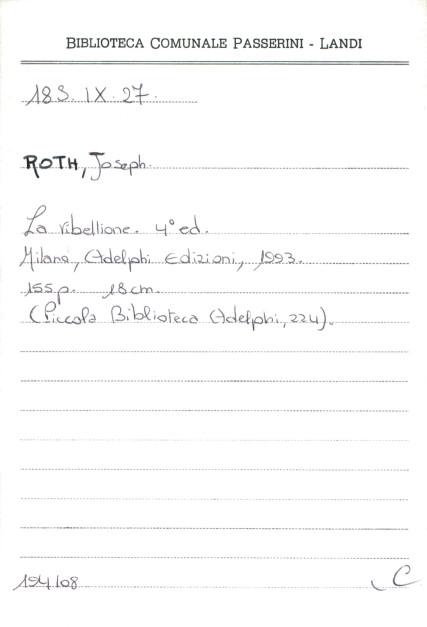 BIBLIOTECA COMUNALE PASSERINI - LANDI
183. IX. 27.
ROTH, Joseph.
La ribellione. 4° ed.
Milano, Adelphi Edizioni, 1993.
155 p. 18 cm.
(Piccola Biblioteca Adelphi, 224).
194108
C